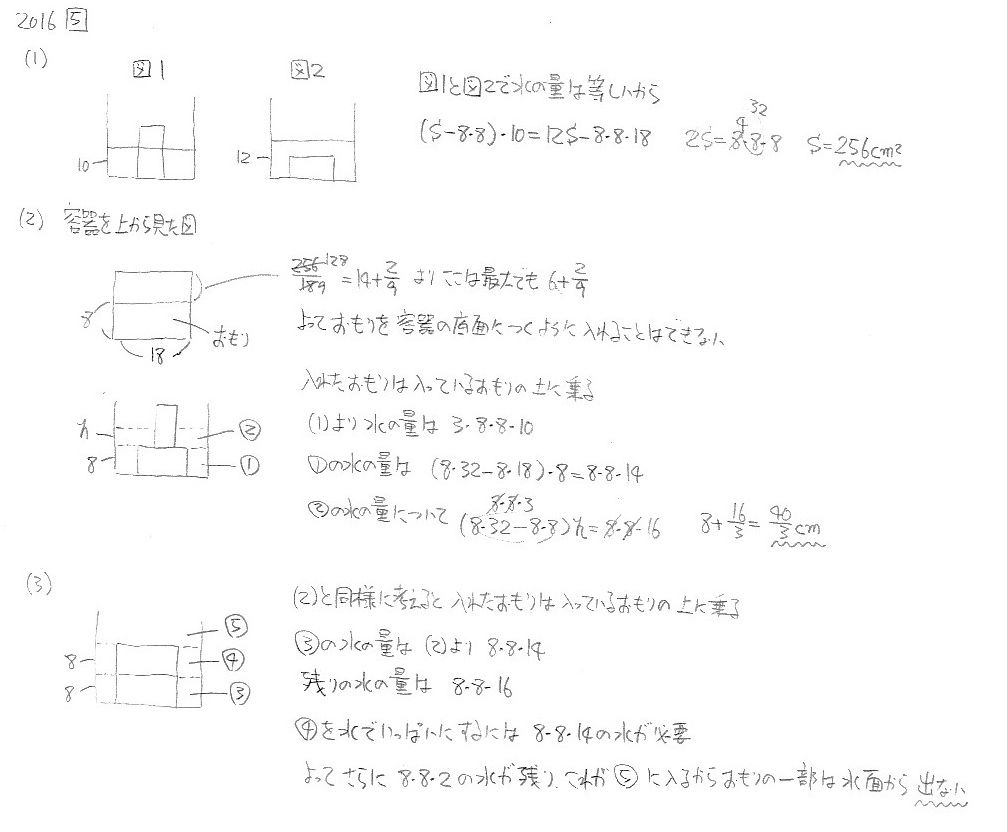 2016 5
(1)
図1 図2
10
12
図1と図2で水の量は等しいから
(S-8・8)・10=12S-8・8・18 2S=8・8・8 S=256cm²
4 32
(2) 容器を上から見た図
8
18
おもり
256/18 128/9 =14+2/9 よりここは最大でも 6+2/9
よっておもりを容器の底面につくように入れることはできない
入れたおもりは入っているおもりの上に乗る
h
8
②
①
(1)より水の量は 3・8・8・10
①の水の量は (8・32-8・18)・8=8・8・14
②の水の量について (8・32-8・8)h=8・8・16 8+16/3=40/3cm
8・8・3
(3)
(2)と同様に考えると入れたおもりは入っているおもりの上に乗る
8
8
⑤
④
③
③の水の量は(2)より 8・8・14
残りの水の量は 8・8・16
④を水でいっぱいにするには 8・8・14の水が必要
よってさらに 8・8・2の水が残り、これが⑤に入るからおもりの一部は水面から出ない